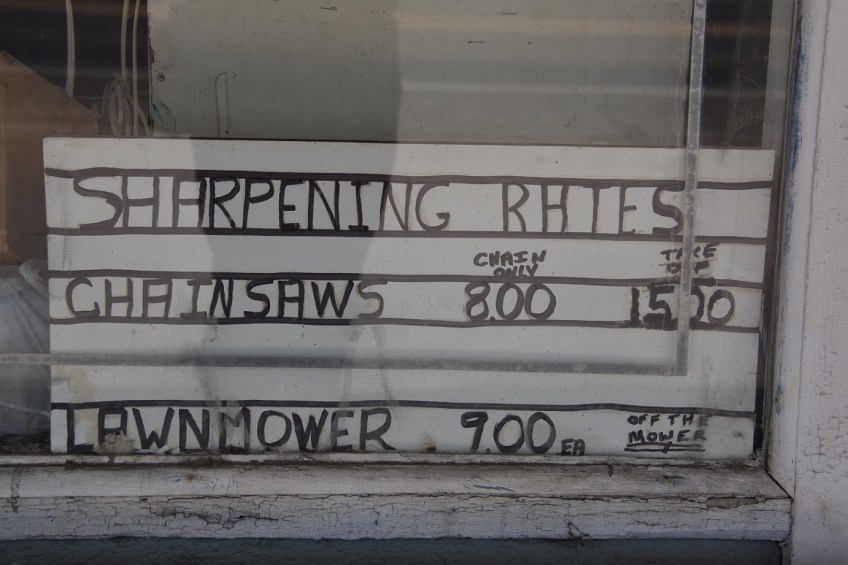 SHARPENING RATES
CHAIN ONLY
TAKE OFF
CHAINSAWS 8.00 15.00
LAWNMOWER 9.00 EA OFF THE MOWER